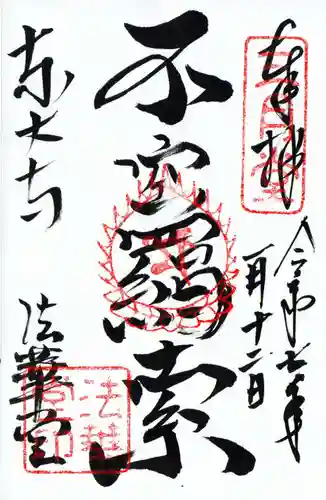 奉拝
令和七年
一月十二日
不空羂索
東大寺
法華堂
法華
堂印